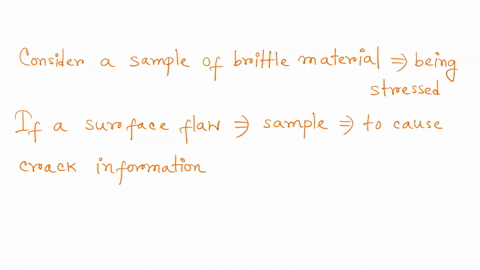 Consider a sample of brittle material ⇒ being
stressed
If a surface flaw ⇒ sample ⇒ to cause
crack information